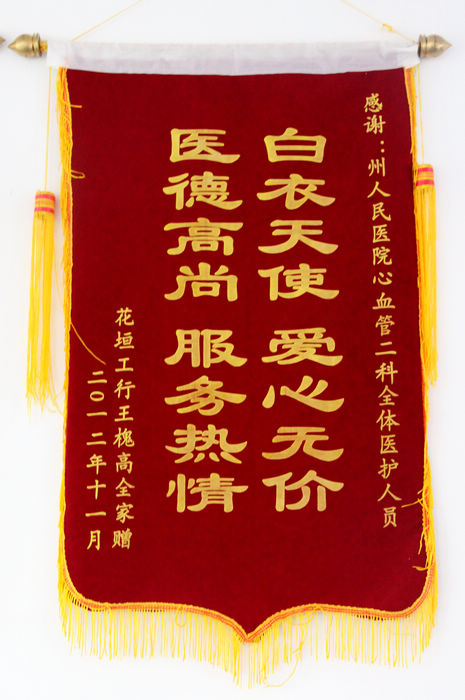 感谢：州人民医院心血管二科全体医护人员
白衣天使 爱心无价
医德高尚 服务热情
花垣工行王槐高全家赠
二〇一二年十一月